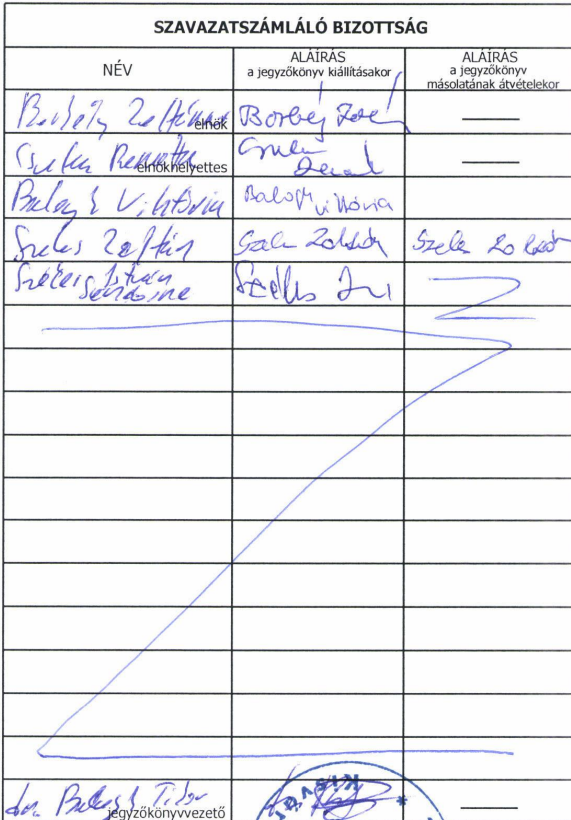 SZAVAZATSZÁMLÁLÓ BIZOTTSÁG
NÉV
ALÁÍRÁS
a jegyzőkönyv kiállításakor
ALÁÍRÁS
a jegyzőkönyv
másolatának átvételekor
Borbély Zoltánné elnök Borbély
Csuka Renáta elnökhelyettes
Balogh Viktória Balogh Viktória
Szeles Zoltán Szeles Zoltán Szeles Zoltán
István
Sándorné
dr. Balogh Tibor jegyzőkönyvvezető